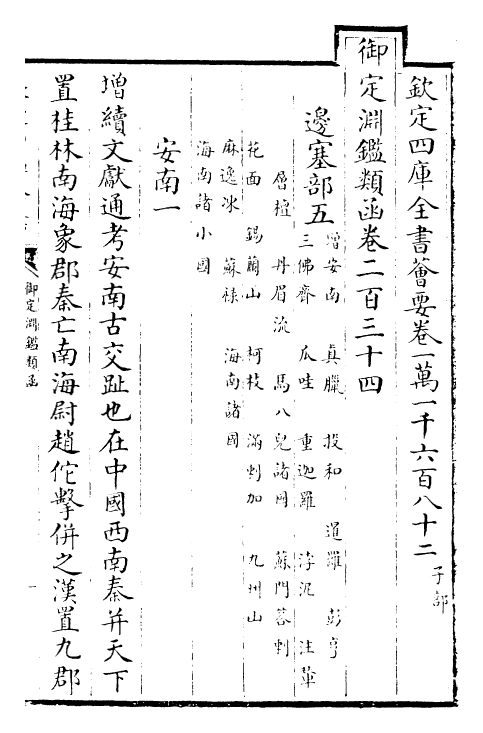 欽定四庫全書薈要卷一萬一千六百八十二
子部
御定淵鑑類函卷二百三十四
邊塞部五
增安南 真臘 投和 道羅 彭亨
三佛齊 瓜哇 重迦羅 浡泥 注輦
層檀 丹眉流 馬八兒諸國 蘇門荅剌
花面 錫蘭山 柯枝 滿剌加 九州山
麻逸冰 蘇祿 海南諸國
海南諸小國
安南一
增續文獻通考安南古交趾也在中國西南秦并天下
置桂林南海象郡秦亡南海尉趙佗擊併之漢置九郡
御定淵鑑類函
一